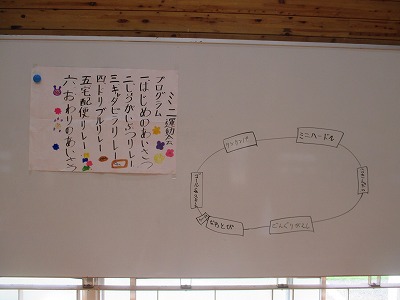 ミニ運動会
プログラム
一はじめのあいさつ
二しょうがいぶつリレー
三キャタピラリレー
四ドリブルリレー
五宅配便リレー
六おわりのあいさつ
ミニハードル
どんぐりがえし
なわとび